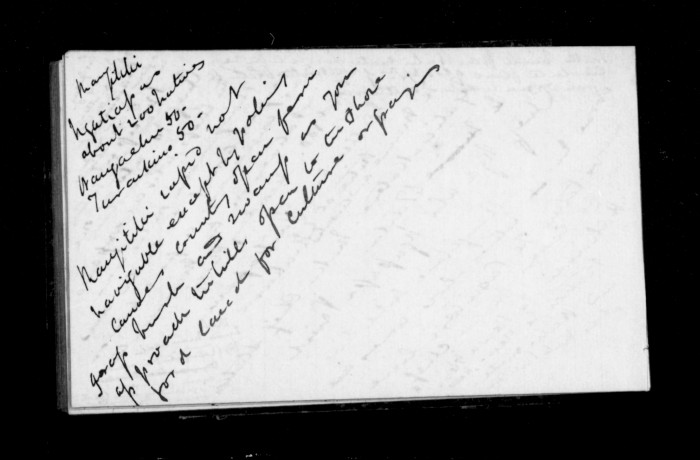 Ngatiapa
about 200 natives
50 -
50 -
not
navigable except by poling
canoes country open fern
grass bush and swamp as you
approach the hills open to the shore
good land for culture or grazing